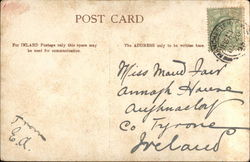 POST CARD
For INLAND Postage only this space may
be used for communication.
The ADDRESS only to be written here.
Miss Maud Fair
Annagh House
Aughnacloy
Co Tyrone
Ireland
E.A.